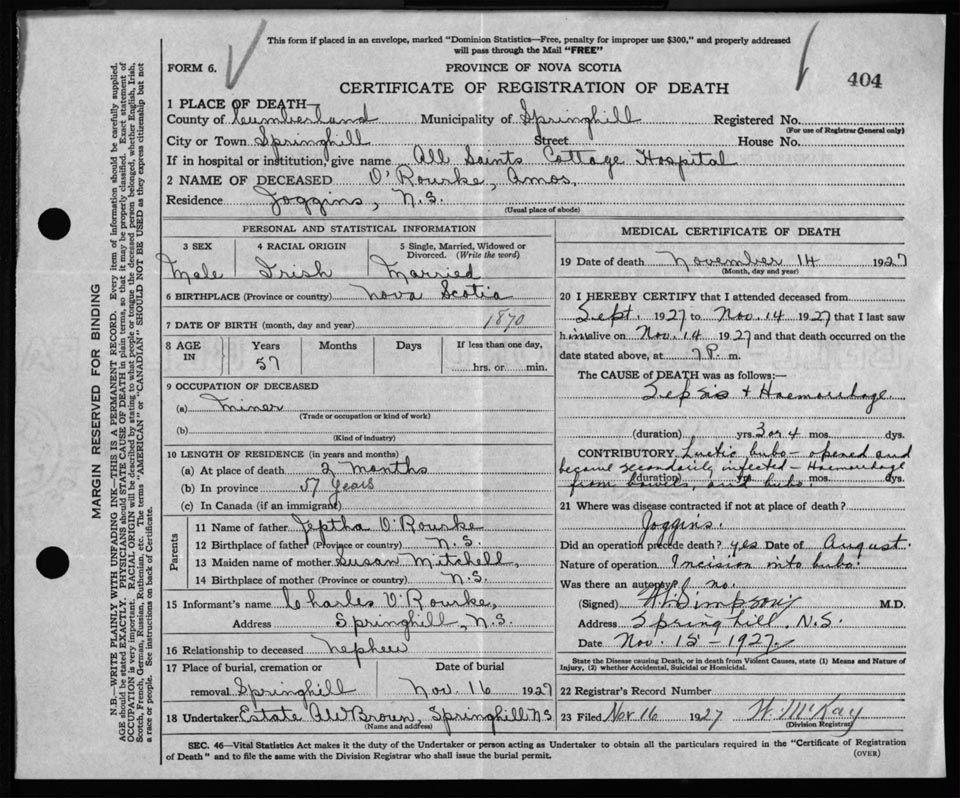 This form if placed in an envelope, marked "Dominion Statistics—Free, penalty for improper use $300," and properly addressed
will pass through the Mail "FREE"
FORM 6.
PROVINCE OF NOVA SCOTIA
404
CERTIFICATE OF REGISTRATION OF DEATH
MARGIN RESERVED FOR BINDING
N.B.—WRITE PLAINLY WITH UNFADING INK—THIS IS A PERMANENT RECORD. Every item of information should be carefully supplied.
AGE should be stated EXACTLY. PHYSICIANS should STATE CAUSE OF DEATH in plain terms, so that it may be properly classified. Exact statement of
OCCUPATION is very important. RACIAL ORIGIN will be described by stating to what people or tongue the deceased person belonged, whether English, Irish,
Scotch, French, German, Russian, Ruthenian, etc. The terms "AMERICAN" or "CANADIAN" SHOULD NOT BE USED as they express citizenship but not
a race or people. See instructions on back of Certificate.
1 PLACE OF DEATH—
County of Cumberland Municipality of Springhill Registered No.
(For use of Registrar General only)
City or Town Springhill Street House No.
If in hospital or institution, give name All Saints Cottage Hospital
2 NAME OF DECEASED O'Rourke, Amos,
Residence Joggins, N.S.
(Usual place of abode)
PERSONAL AND STATISTICAL INFORMATION
3 SEX 4 RACIAL ORIGIN 5 Single, Married, Widowed or
Divorced. (Write the word)
Male Irish Married
6 BIRTHPLACE (Province or country) Nova Scotia
7 DATE OF BIRTH (month, day and year) 1870
8 AGE IN Years Months Days If less than one day,
57 hrs. or min.
9 OCCUPATION OF DECEASED
(a) Miner
(Trade or occupation or kind of work)
(b)
(Kind of industry)
10 LENGTH OF RESIDENCE (in years and months)
(a) At place of death 2 Months
(b) In province 57 Years
(c) In Canada (if an immigrant)
Parents
11 Name of father Jeptha O'Rourke
12 Birthplace of father (Province or country) N.S.
13 Maiden name of mother Susan Mitchell,
14 Birthplace of mother (Province or country) N.S.
15 Informant's name Charles O'Rourke,
Address Springhill, N.S.
16 Relationship to deceased Nephew
17 Place of burial, cremation or Date of burial
removal Springhill Nov. 16 1927
18 Undertaker Estate A W Brown, Springhill N S
(Name and address)
MEDICAL CERTIFICATE OF DEATH
19 Date of death November 14 1927
(Month, day and year)
20 I HEREBY CERTIFY that I attended deceased from
Sept. 1927 to Nov. 14 1927 that I last saw
him alive on Nov. 14 1927 and that death occurred on the
date stated above, at 7 P. m.
The CAUSE of DEATH was as follows:—
Sepsis + Haemorrhage
(duration) yrs. 3 or 4 mos. dys.
CONTRIBUTORY Luetic bubo - opened and
became secondarily infected - Haemorrhage
(duration) yrs. mos. dys.
from bowels, and bubo.
21 Where was disease contracted if not at place of death?
Joggins.
Did an operation precede death? yes Date of August.
Nature of operation Incision into bubo.
Was there an autopsy? no.
(Signed) Simpson M.D.
Address Springhill, N.S.
Date Nov. 15 - 1927.
State the Disease causing Death, or in death from Violent Causes, state (1) Means and Nature of
Injury, (2) whether Accidental, Suicidal or Homicidal.
22 Registrar's Record Number
23 Filed Nov 16 1927 W. McKay
(Division Registrar)
SEC. 46—Vital Statistics Act makes it the duty of the Undertaker or person acting as Undertaker to obtain all the particulars required in the "Certificate of Registration
of Death" and to file the same with the Division Registrar who shall issue the burial permit.
(OVER)